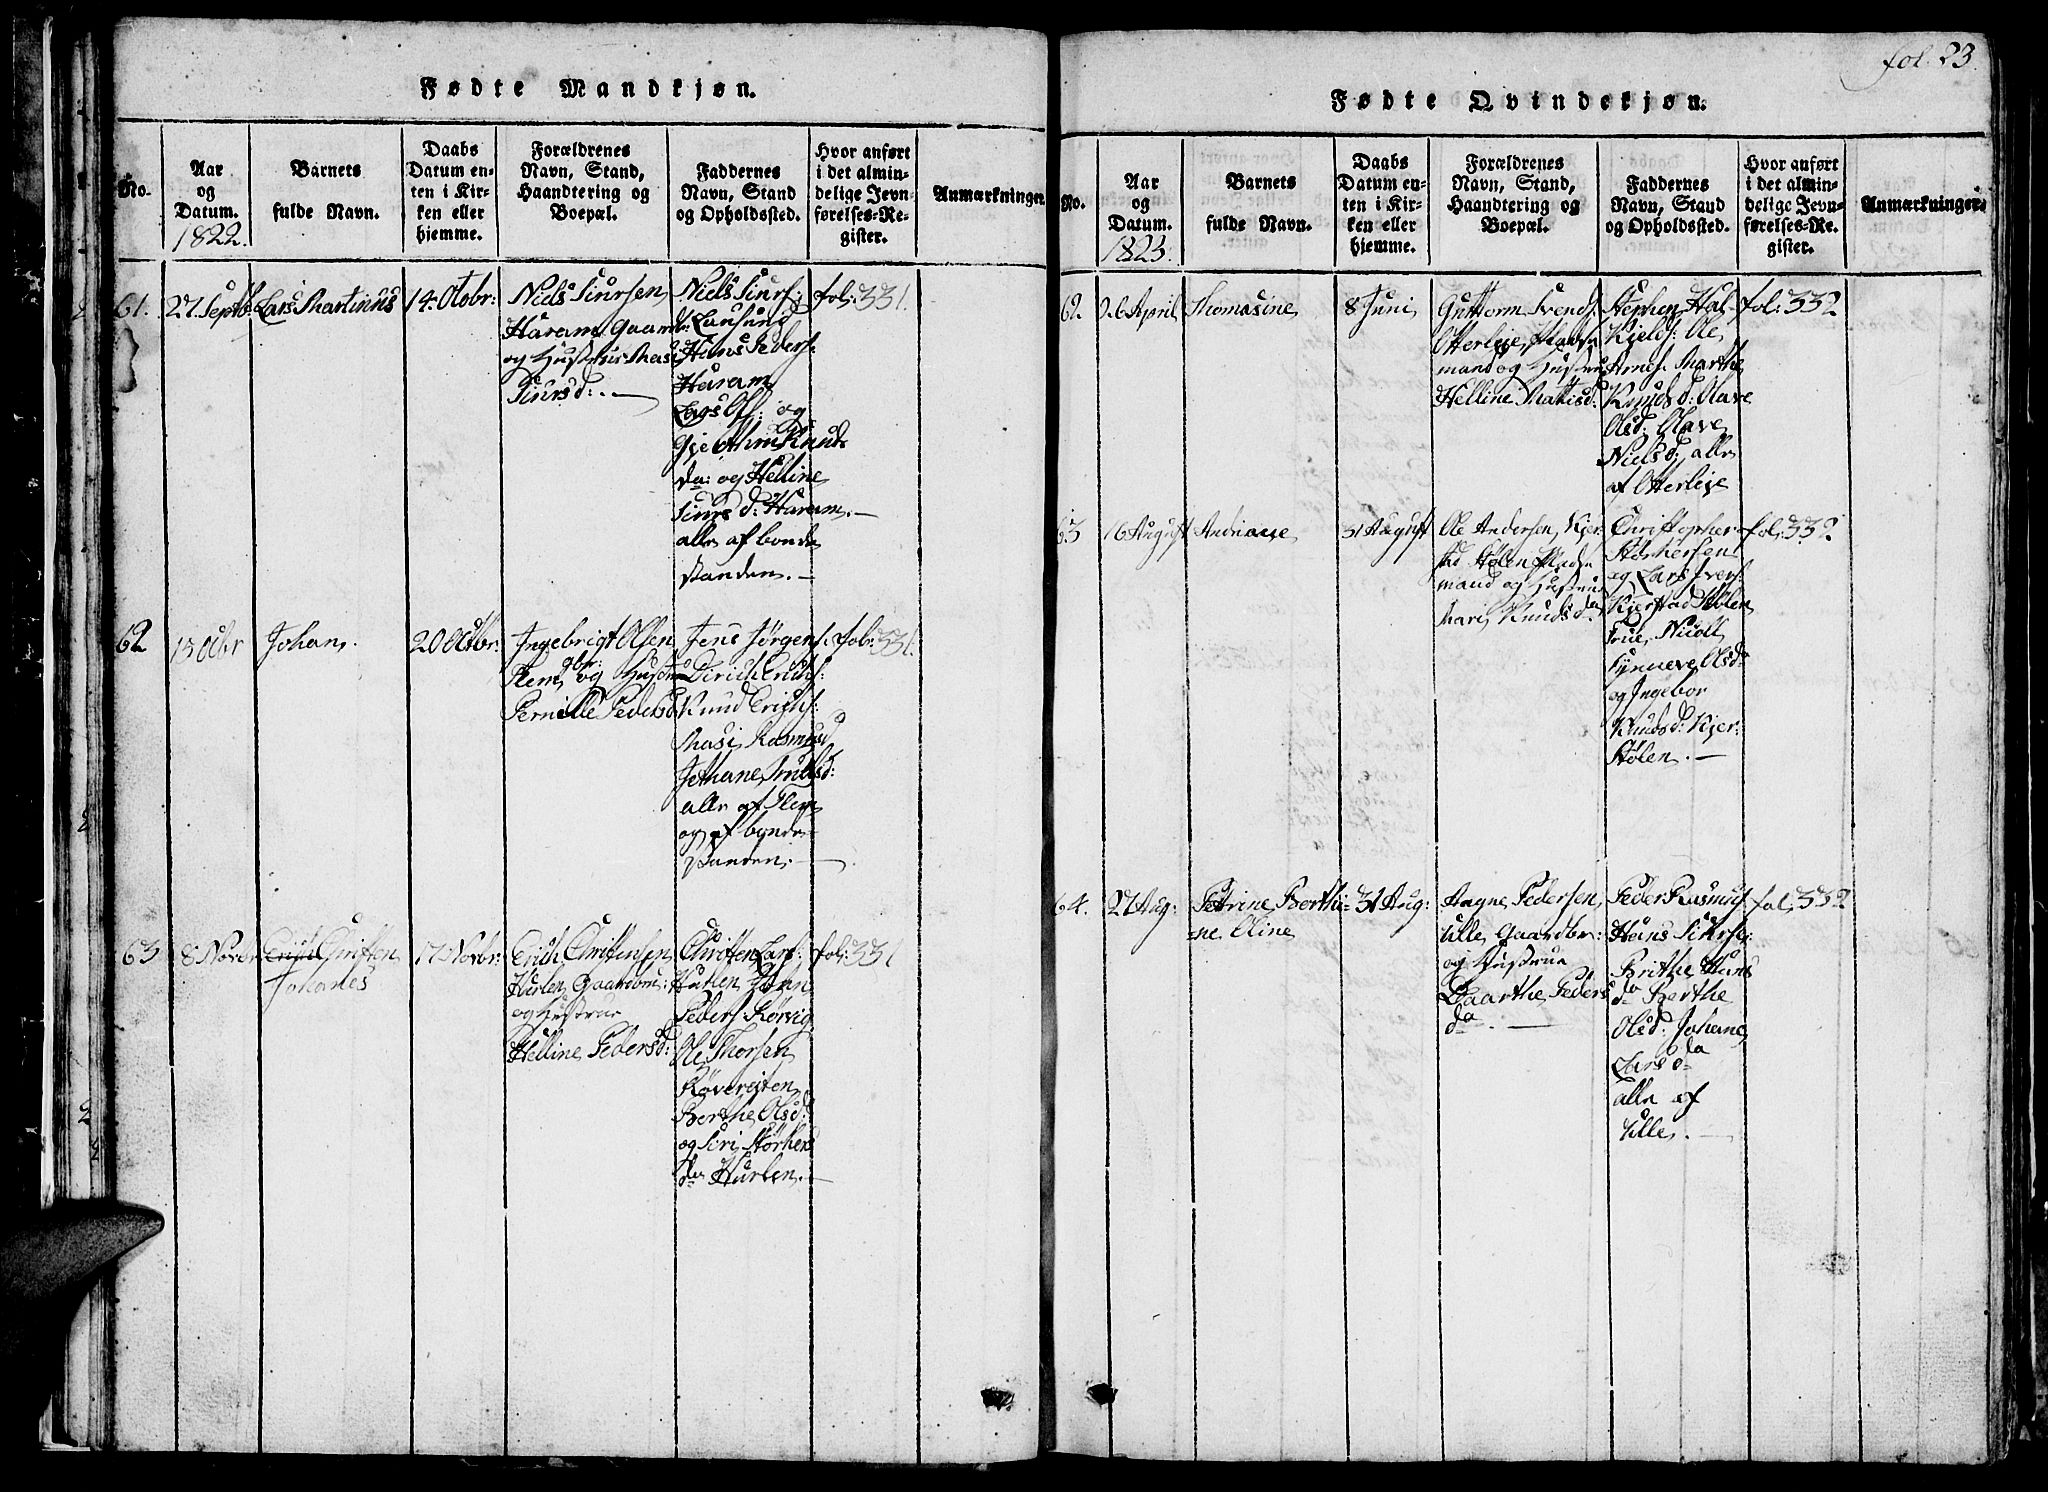 fol. 23
Fødte Mandkjøn.
No.
Aar
og
Datum.
1822.
Barnets
fulde Navn.
Daabs
Datum en-
ten i Kir-
ken eller
hjemme.
Forældrenes
Navn, Stand,
Haandtering og
Boepæl.
Faddernes
Navn, Stand
og Opholdssted.
Hvor anført
i det almin-
delige Jevn-
førelses-Re-
gister.
Anmærkninger.
61.
27. Septb:
Lars Martinus
14. Octobr:
Niels Siursen
Haram Gaardbr:
og Hustrue Masi
Siursd: .—
Niels Siurs:
Hans Peders:
Haram
Lars Ols: og
Knuds
da: og Helline
Siurs d: Haram
alle af bonde
standen. —
fol: 331.
62
13 Octbr
Johan.
20 Octbr:
Ingebrigt Olsen
Flem gbr: og Hustru
Pernille Pedersd
Jens Jørgens:
Dirich Erichs:
Knud Erichs:
Masi Rasmusd
Johane Knudsd:
alle af Flem
og af bonde-
standen. —
fol: 331.
63
8 Novbr
Christen
Johanes
17 Novbr:
Erich Christensen
Hurlen Gaardbm:
og Hustrue
Helline Pedersd:
Christen Lars:
Hurlen John
Peders Kørvig
Ole Thorsen
Berthe Olsd:
og Siri Størkers
da Hurlen. —
fol: 331
Fødte Qvindekjøn.
No.
Aar
og
Datum.
1823.
Barnets
fulde Navn.
Daabs
Datum en-
ten i Kir-
ken eller
hjemme.
Forældrenes
Navn, Stand,
Haandtering og
Boepæl.
Faddernes
Navn, Stand
og Opholdssted.
Hvor anført
i det almin-
delige Jevn-
førelses-Re-
gister.
Anmærkninger.
62.
26 April
Thomasine
8 Juni
Guttorm Svends:
Otterleje Huus
mand og Hustrue
Helline Matisd:
Stephen Hal-
Kields: Ole
Arnes: Marthe
Knudsd: Olave
Olsd: Olave
Nielsd: alle
af Otterleje
fol: 332
63
16 August
Andriane
31 August
Ole Andersen Kjer-
stad Hølen Huus
mand og Hustrue
Mari Knudsda
Christopher
Størkersen
og Lars Ivers:
Kjerstad Hølen
Synneve Olsda
og Ingebor
Knudsd: Kjer-
Stølen. —
fol: 332
64.
27 Aug:
Petrine Berthi-
ne Oline
31 Aug:
Aagne Pedersen
Ulle Gaardbr:
og Hustrue
Baarthe Peders
da. —
Peder Rasmus:
Hans Siurs:
Brithe Hans
da Berthe
Olsd: Johane
Larsda
alle af
Ulle. —
fol: 332